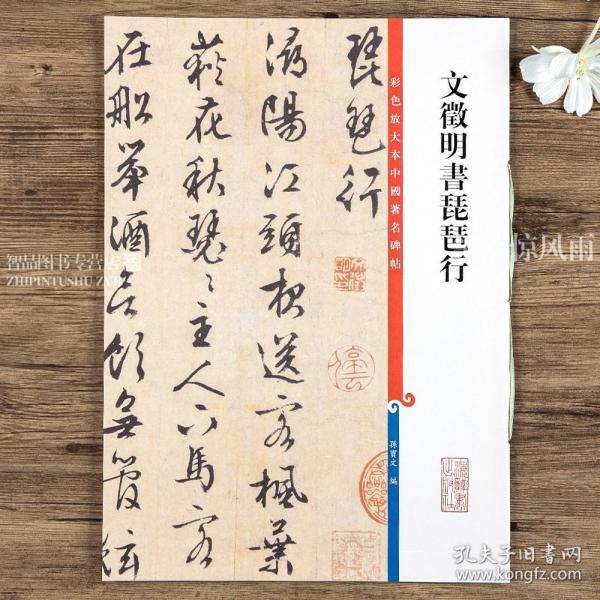 文徵明書琵琶行
彩色放大本中國著名碑帖
孫寶文 編
琵琶行
潯陽江頭夜送客楓葉
荻花秋瑟〻主人下馬客
在船舉酒欲飲無管絃
智品图书专营店
ZHIPINTUSHUZHUANYING
孔夫子旧书网
www.kongfz.com